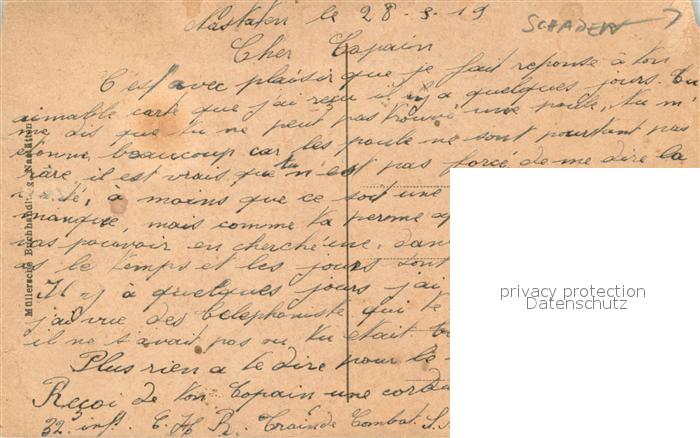 Nastaten le 28-3-19
SCHADEN
Cher Copain
C'est avec plaisir que je fait reponse à ton
aimable carte que j'ai reçu il y a quelques jours. Tu
me dis que tu ne peut pas trouvé une poule, tu m'
étonne beaucoup car les poule ne sont pourtant pas
rare il est vrais que tu n'est pas forcé de me dire la
à moins que ce soit une
manque, mais comme ta perme
pas pouvoir en cherché une, dans
le temps et les jours sont
Il y à quelques jours j'ai
j'ai vue des telephoniste qui te
il ne s'avait pas ou tu etait
Plus rien a te dire pour le
Reçoi de ton Copain une
32e inf. E. H. R. Train de Combat. S.
Müllersche Buchhandlung, Nastätten
privacy protection
Datenschutz